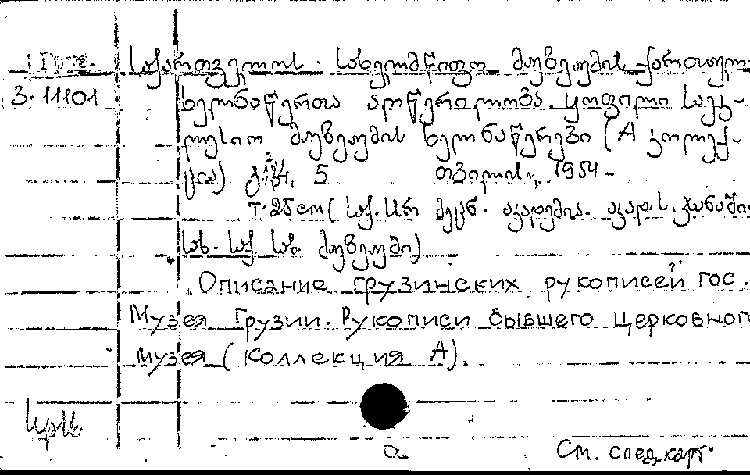 1 Груз.
3.11101
საქართველოს სახელმწიფო მუზეუმის ქართულ
ხელნაწერთა აღწერილობა. ყოფილი საეკ-
ლესიო მუზეუმის ხელნაწერები (A კოლექ-
ცია) 5 თბილისი, 1954-
25 cm (საქ. სსრ მეცნ. აკადემია. აკად. ს. ჯანაშია
სახ. საქ. სახ. მუზეუმი)
Описание грузинских рукописей гос.
Музея Грузии. Рукописи бывшего церковного
музея (коллекция А).
См. след. карт.